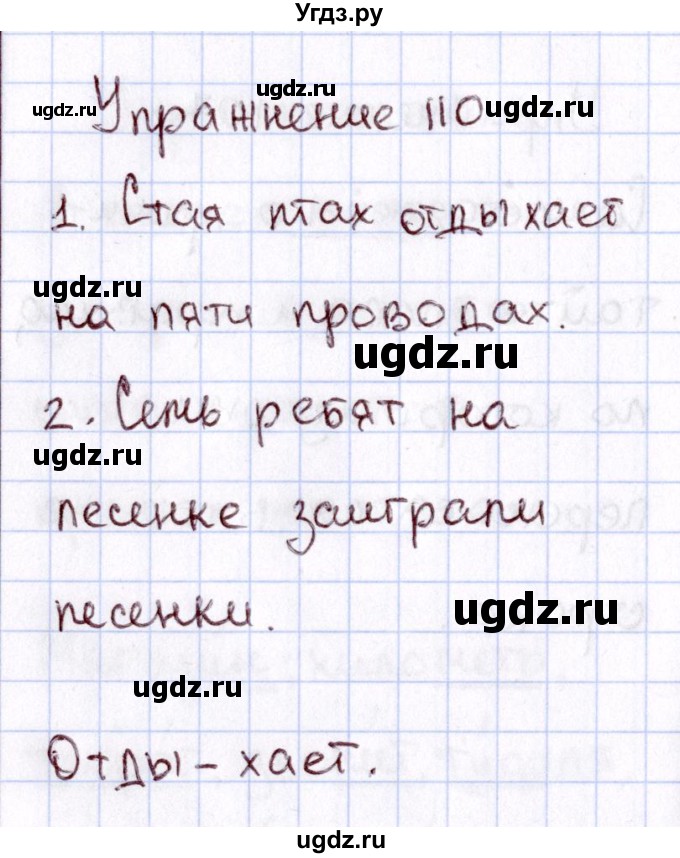 Угдз.ру
ugdz.ru
ugdz.ru ugdz.ru
Упражнение 110
1. Стая птах отдыхает
ugdz.ru
на пяти проводах.
ugdz.ru
2. Семь ребят на
ugdz.ru
песенке заиграли
песенки.
ugdz.ru
ugdz.ru
Отды - хает.
ugdz.ru